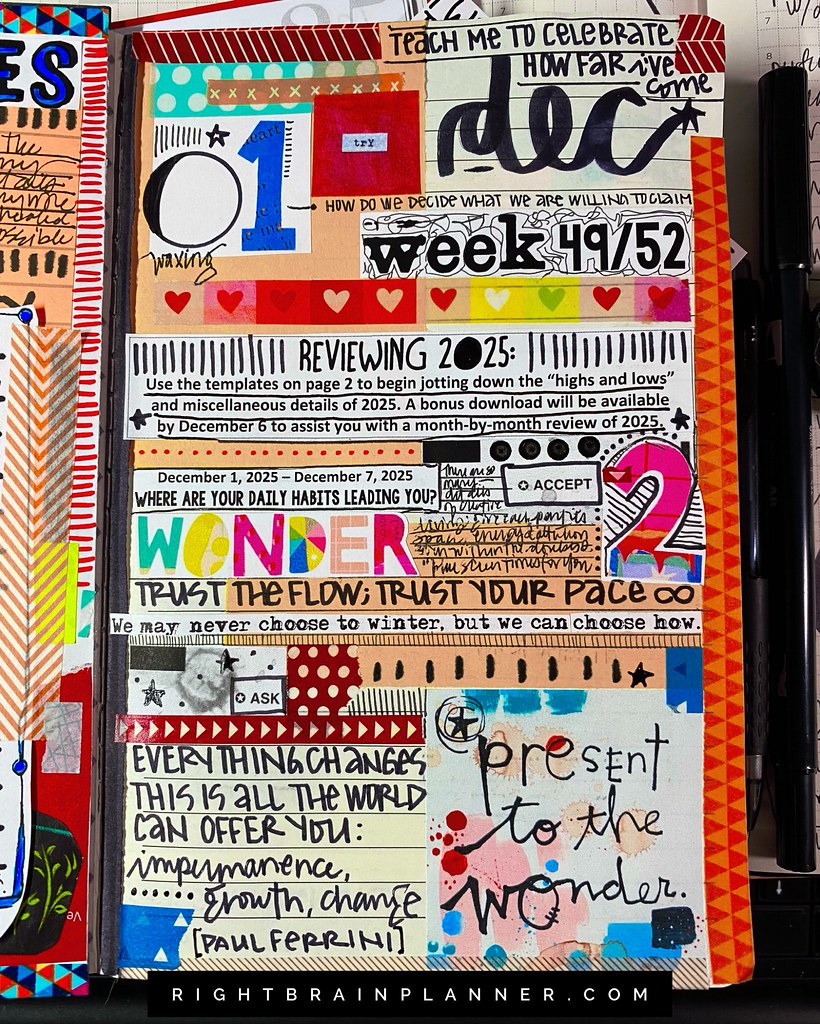 ES
The
TEACH ME TO CELEBRATE
HOW FAR i've
come
dec
heart
01
try
waxing
HOW DO WE DECIDE WHAT WE ARE WILLING TO CLAIM
week 49/52
REVIEWING 2025:
Use the templates on page 2 to begin jotting down the “highs and lows”
and miscellaneous details of 2025. A bonus download will be available
by December 6 to assist you with a month-by-month review of 2025.
December 1, 2025 – December 7, 2025
WHERE ARE YOUR DAILY HABITS LEADING YOU?
ACCEPT
2
WONDER
TRUST THE FLOW; TRUST YOUR PACE ∞
We may never choose to winter, but we can choose how.
ASK
EVERYTHING CHANGES
THIS IS ALL THE WORLD
CAN OFFER YOU:
impermanence,
growth, change
[PAUL FERRINI]
present
to the
wonder.
RIGHTBRAINPLANNER.COM